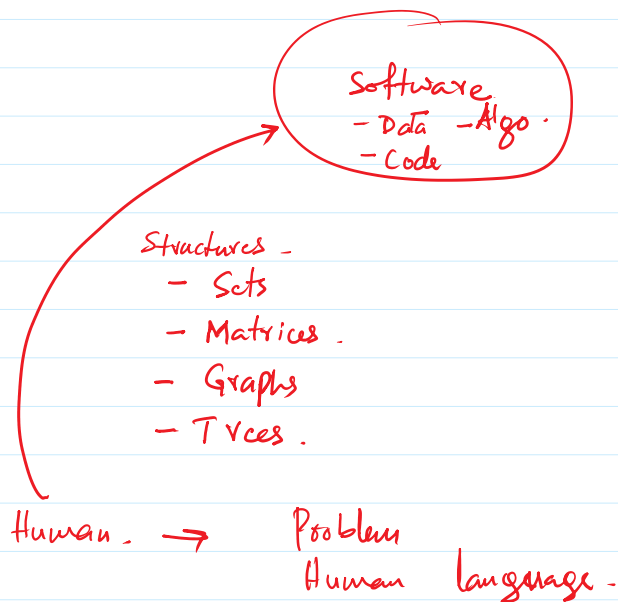 Software
- Data - Algo.
- Code
Structures -
- Sets
- Matrices.
- Graphs
- Trees.
Human. → Problem
Human language.